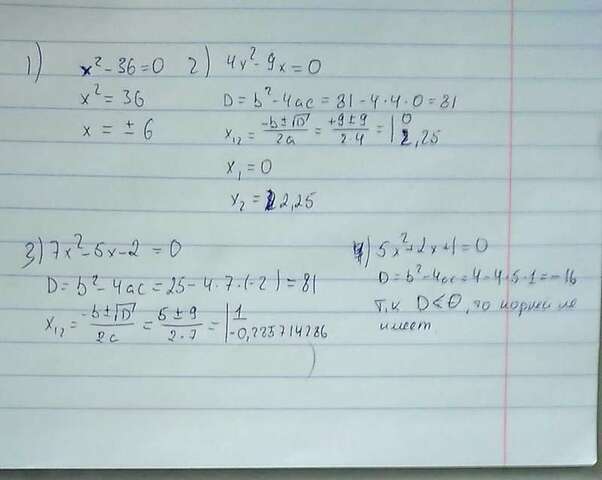 1) x² - 36 = 0
x² = 36
x = ± 6
2) 4x² - 9x = 0
D = b² - 4ac = 81 - 4 · 4 · 0 = 81
x₁,₂ = (-b ± √D) / 2a = (+9 ± 9) / (2 · 4) = | 0 ; 2,25
x₁ = 0
x₂ = 2,25
3) 7x² - 5x - 2 = 0
D = b² - 4ac = 25 - 4 · 7 · (-2) = 81
x₁,₂ = (-b ± √D) / 2a = (5 ± 9) / (2 · 7) = | 1 ; -0,285714286
4) 5x² + 2x + 1 = 0
D = b² - 4ac = 4 - 4 · 5 · 1 = -16
Т,к D < 0, то корней не
имеет